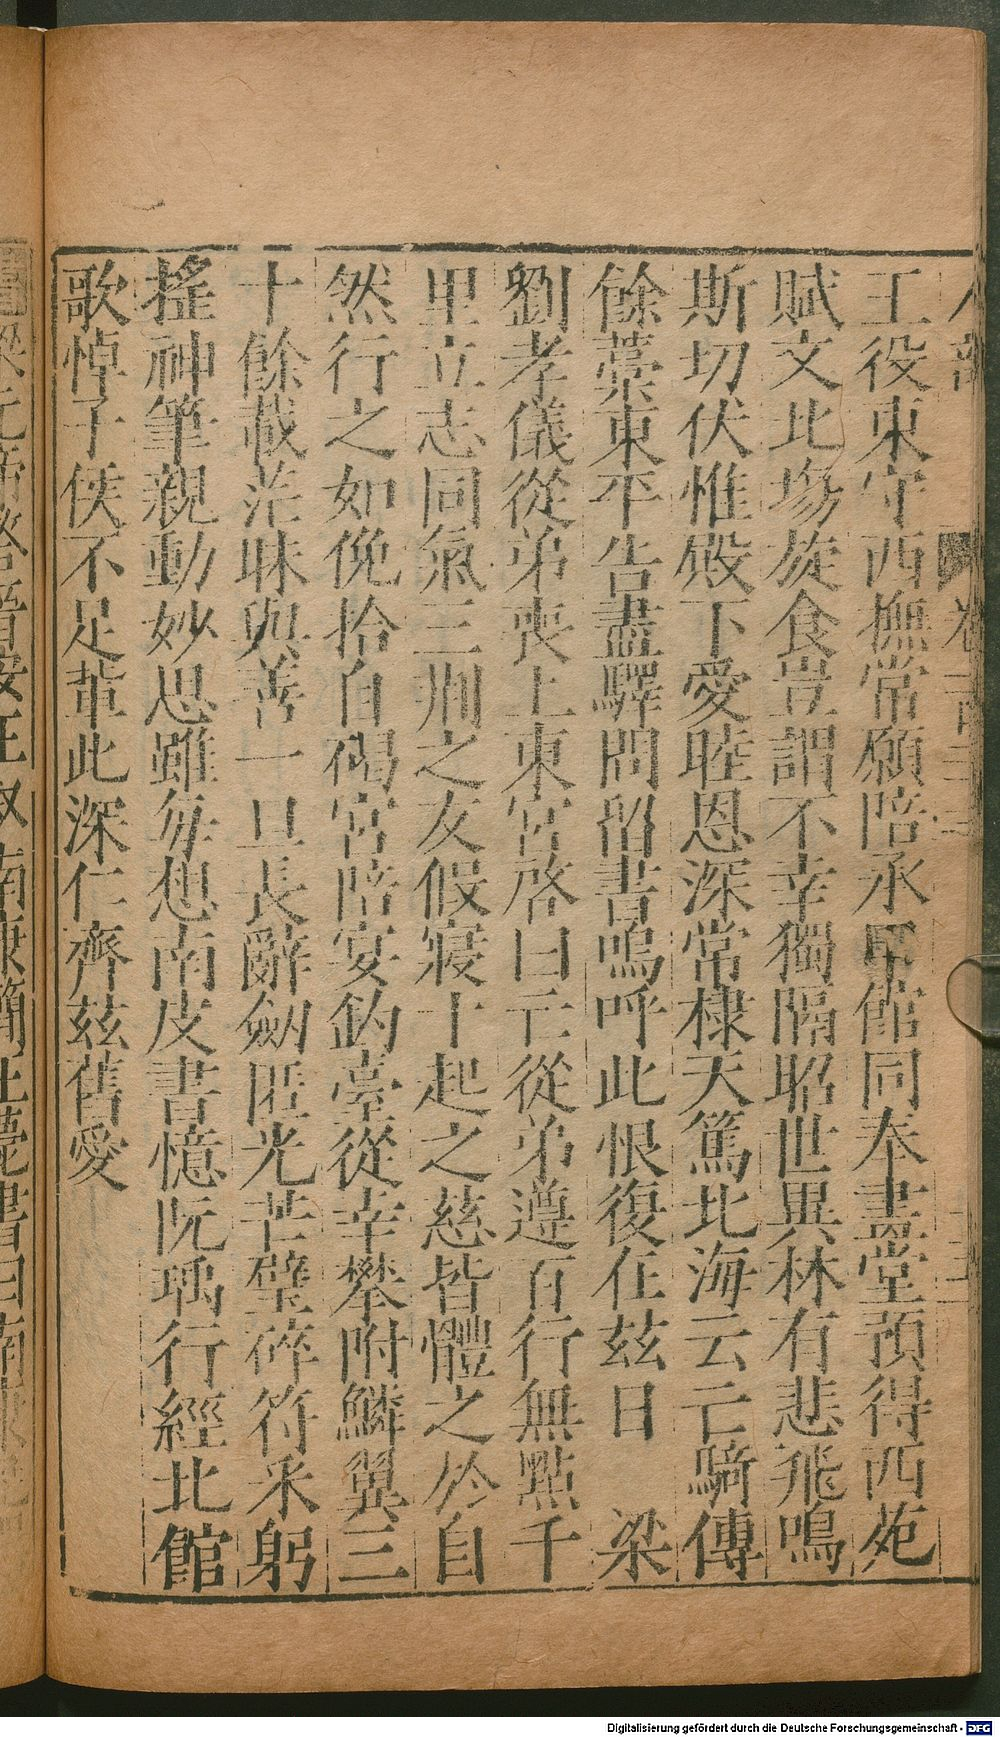 王役東守西撫常願陪承甲館同奉畫堂預得西苑
賦文北場旋食豈謂不幸獨隔昭世異林有悲飛鳴
斯切伏惟殿下愛睦恩深常棣天篤北海云亡騎傳
餘藁東平告盡驛問留書嗚呼此恨復在茲日　梁
劉孝儀從弟喪上東宮啓曰亡從弟遵百行無點千
里立志同氣三荆之友假寢十起之慈皆體之於自
然行之如俛拾自碣宮陪宴釣臺從幸攀附鱗翼三
十餘載茫昧與善一旦長辭劒匣光芒璧碎符采躬
搖神筆親動妙思雖每想南皮書憶阮瑀行經北館
歌悼子侯不足輩此深仁齊茲舊愛
Digitalisierung gefördert durch die Deutsche Forschungsgemeinschaft - DFG